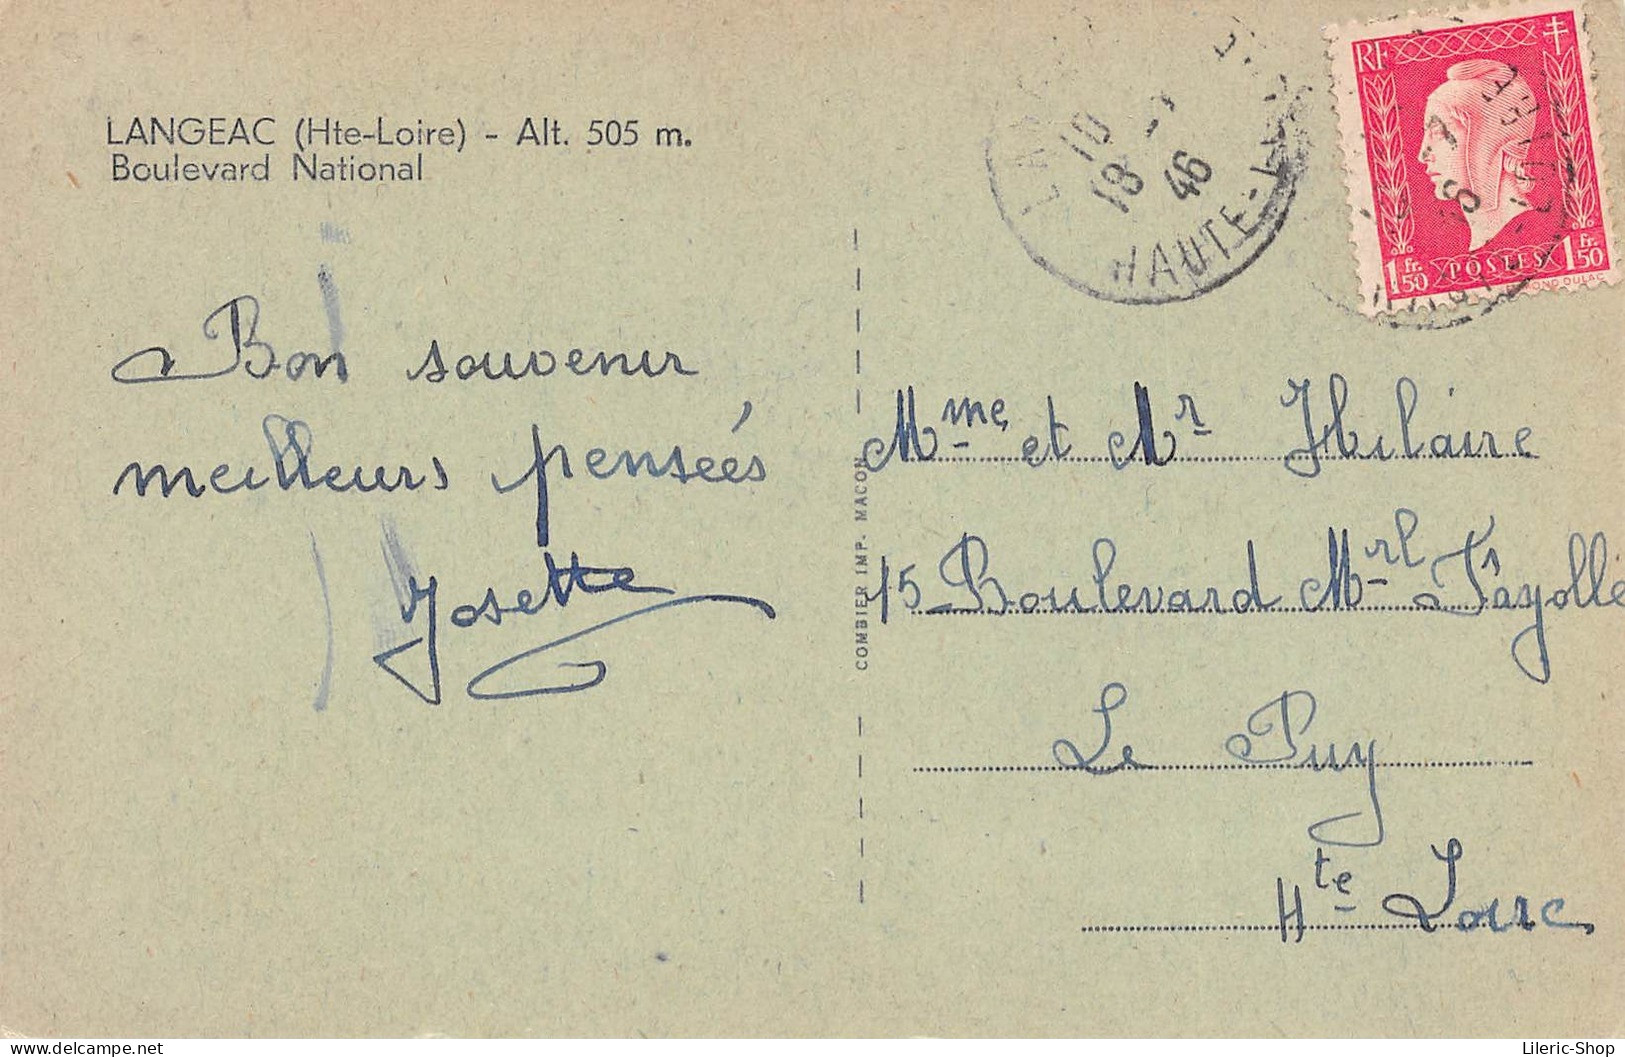 LANGEAC (Hte-Loire) - Alt. 505 m.
Boulevard National
Bon souvenir
meilleurs pensées
Josette
COMBIER IMP. MACON
10
18 - 7
46
HAUTE-L
RF
1 fr. 50
POSTES
1 fr. 50
DULAC
Mme et Mr Hilaire
15 Boulevard Mrl Fayolle
Le Puy
Hte Loire
Lileric-Shop
www.delcampe.net